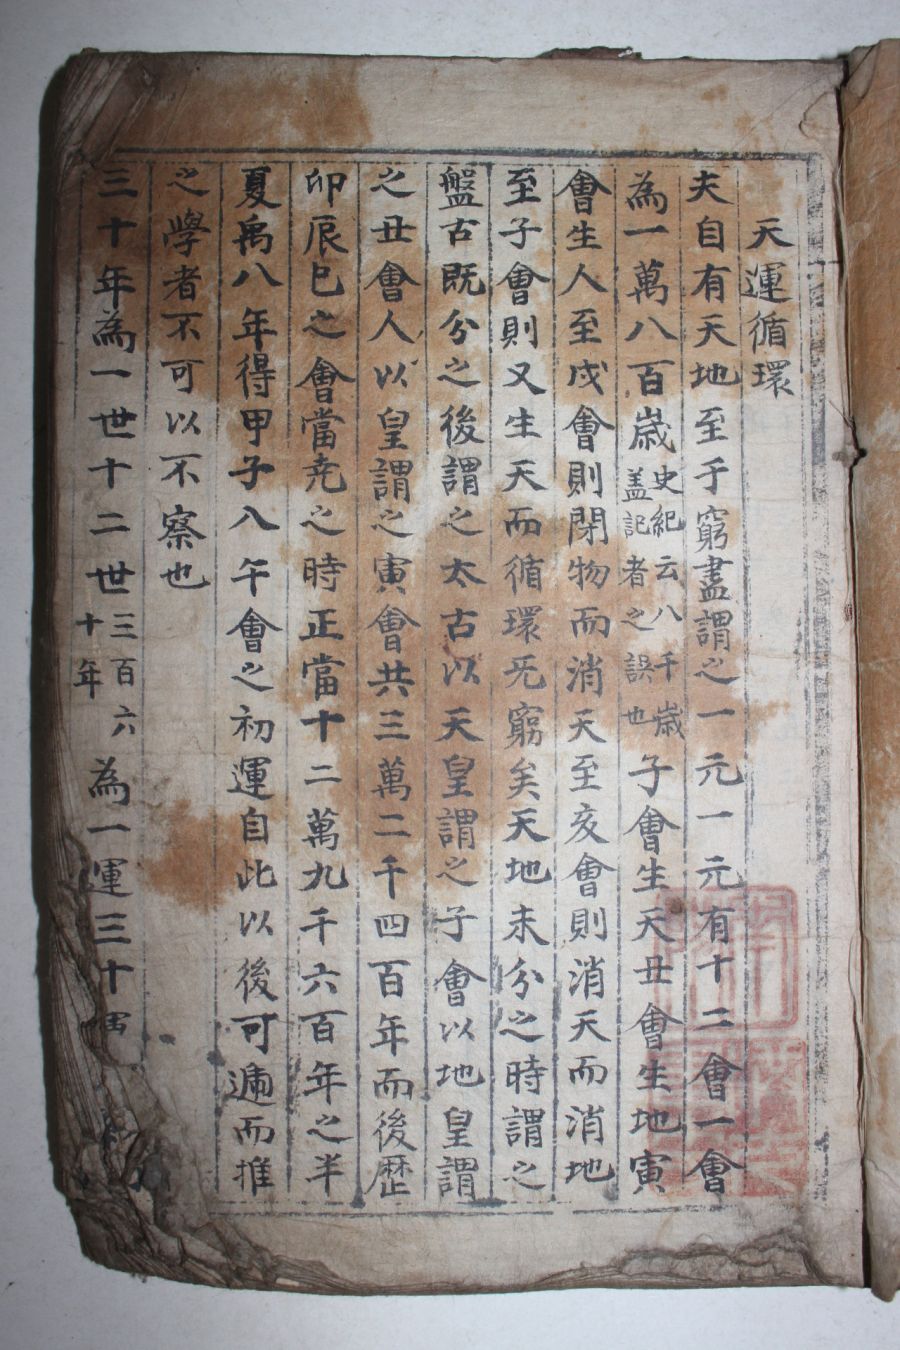 天運循環
夫自有天地至于窮盡謂之一元一元有十二會一會
為一萬八百歲史紀云八千歲盖記者之誤也子會生天丑會生地寅
會生人至戌會則閉物而消天至亥會則消天而消地
至子會則又生天而循環旡窮矣天地未分之時謂之
盤古旣分之後謂之太古以天皇謂之子會以地皇謂
之丑會人以皇謂之寅會共三萬二千四百年而後歷
卯辰巳之會當尭之時正當十二萬九千六百年之半
夏禹八年得甲子八午會之初運自此以後可遡而推
之學者不可以不察也
三十年為一世十二世三百六十年為一運三十